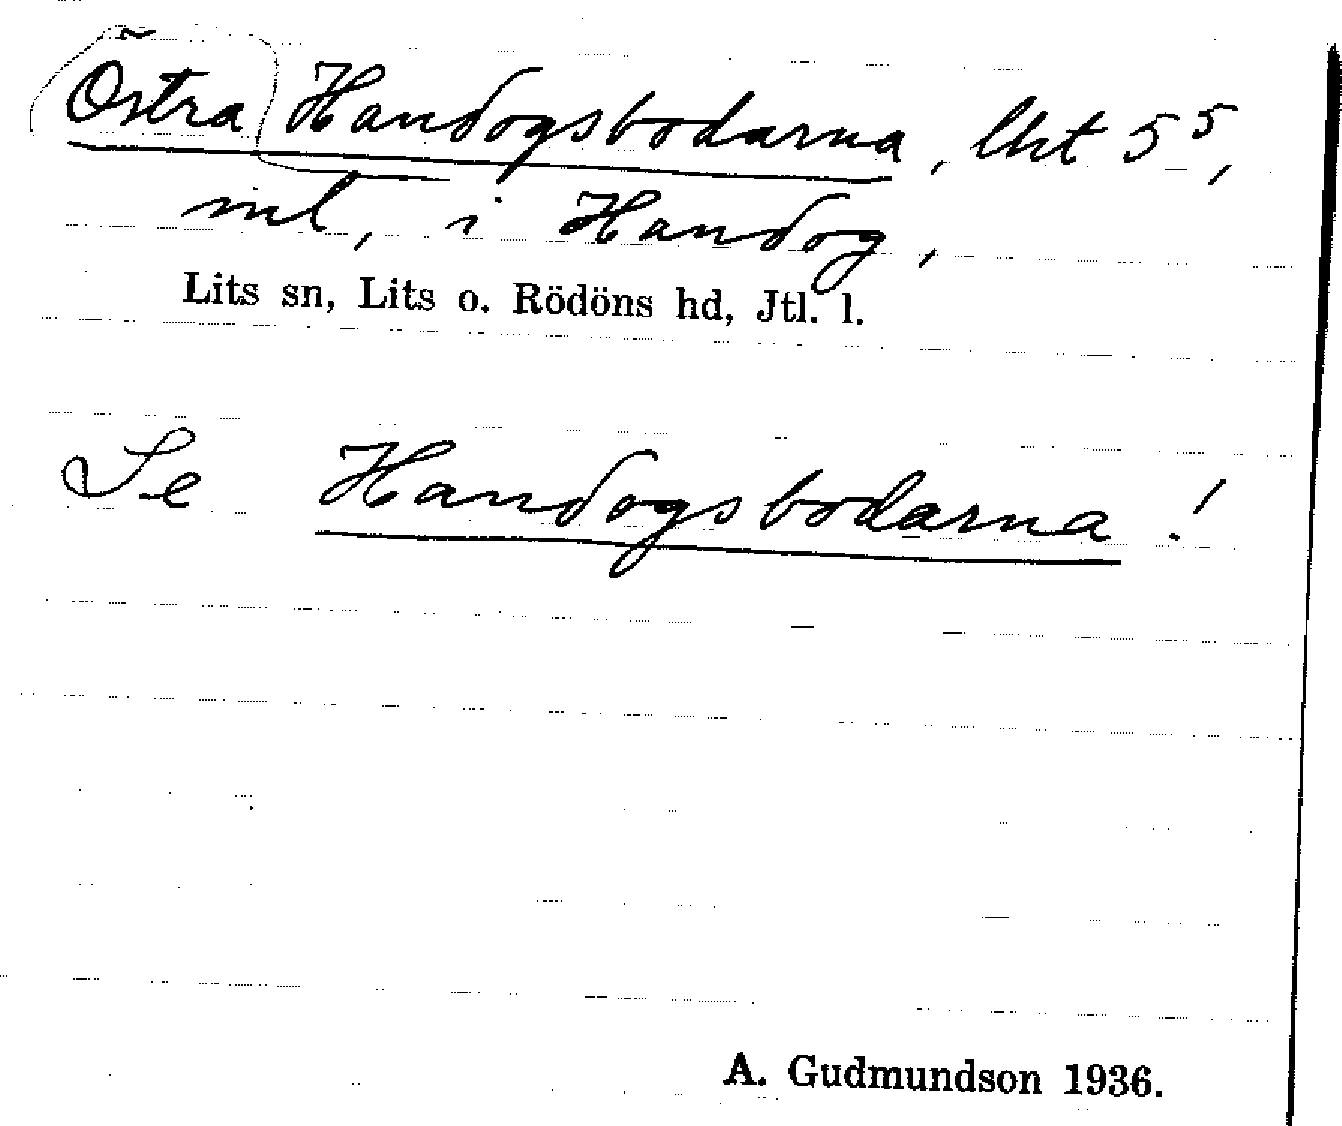 Östra Handogsbodarna, lht 5⁵,
inl, i Handog,
Lits sn, Lits o. Rödöns hd, Jtl. l.
Se Handogsbodarna!
A. Gudmundson 1936.